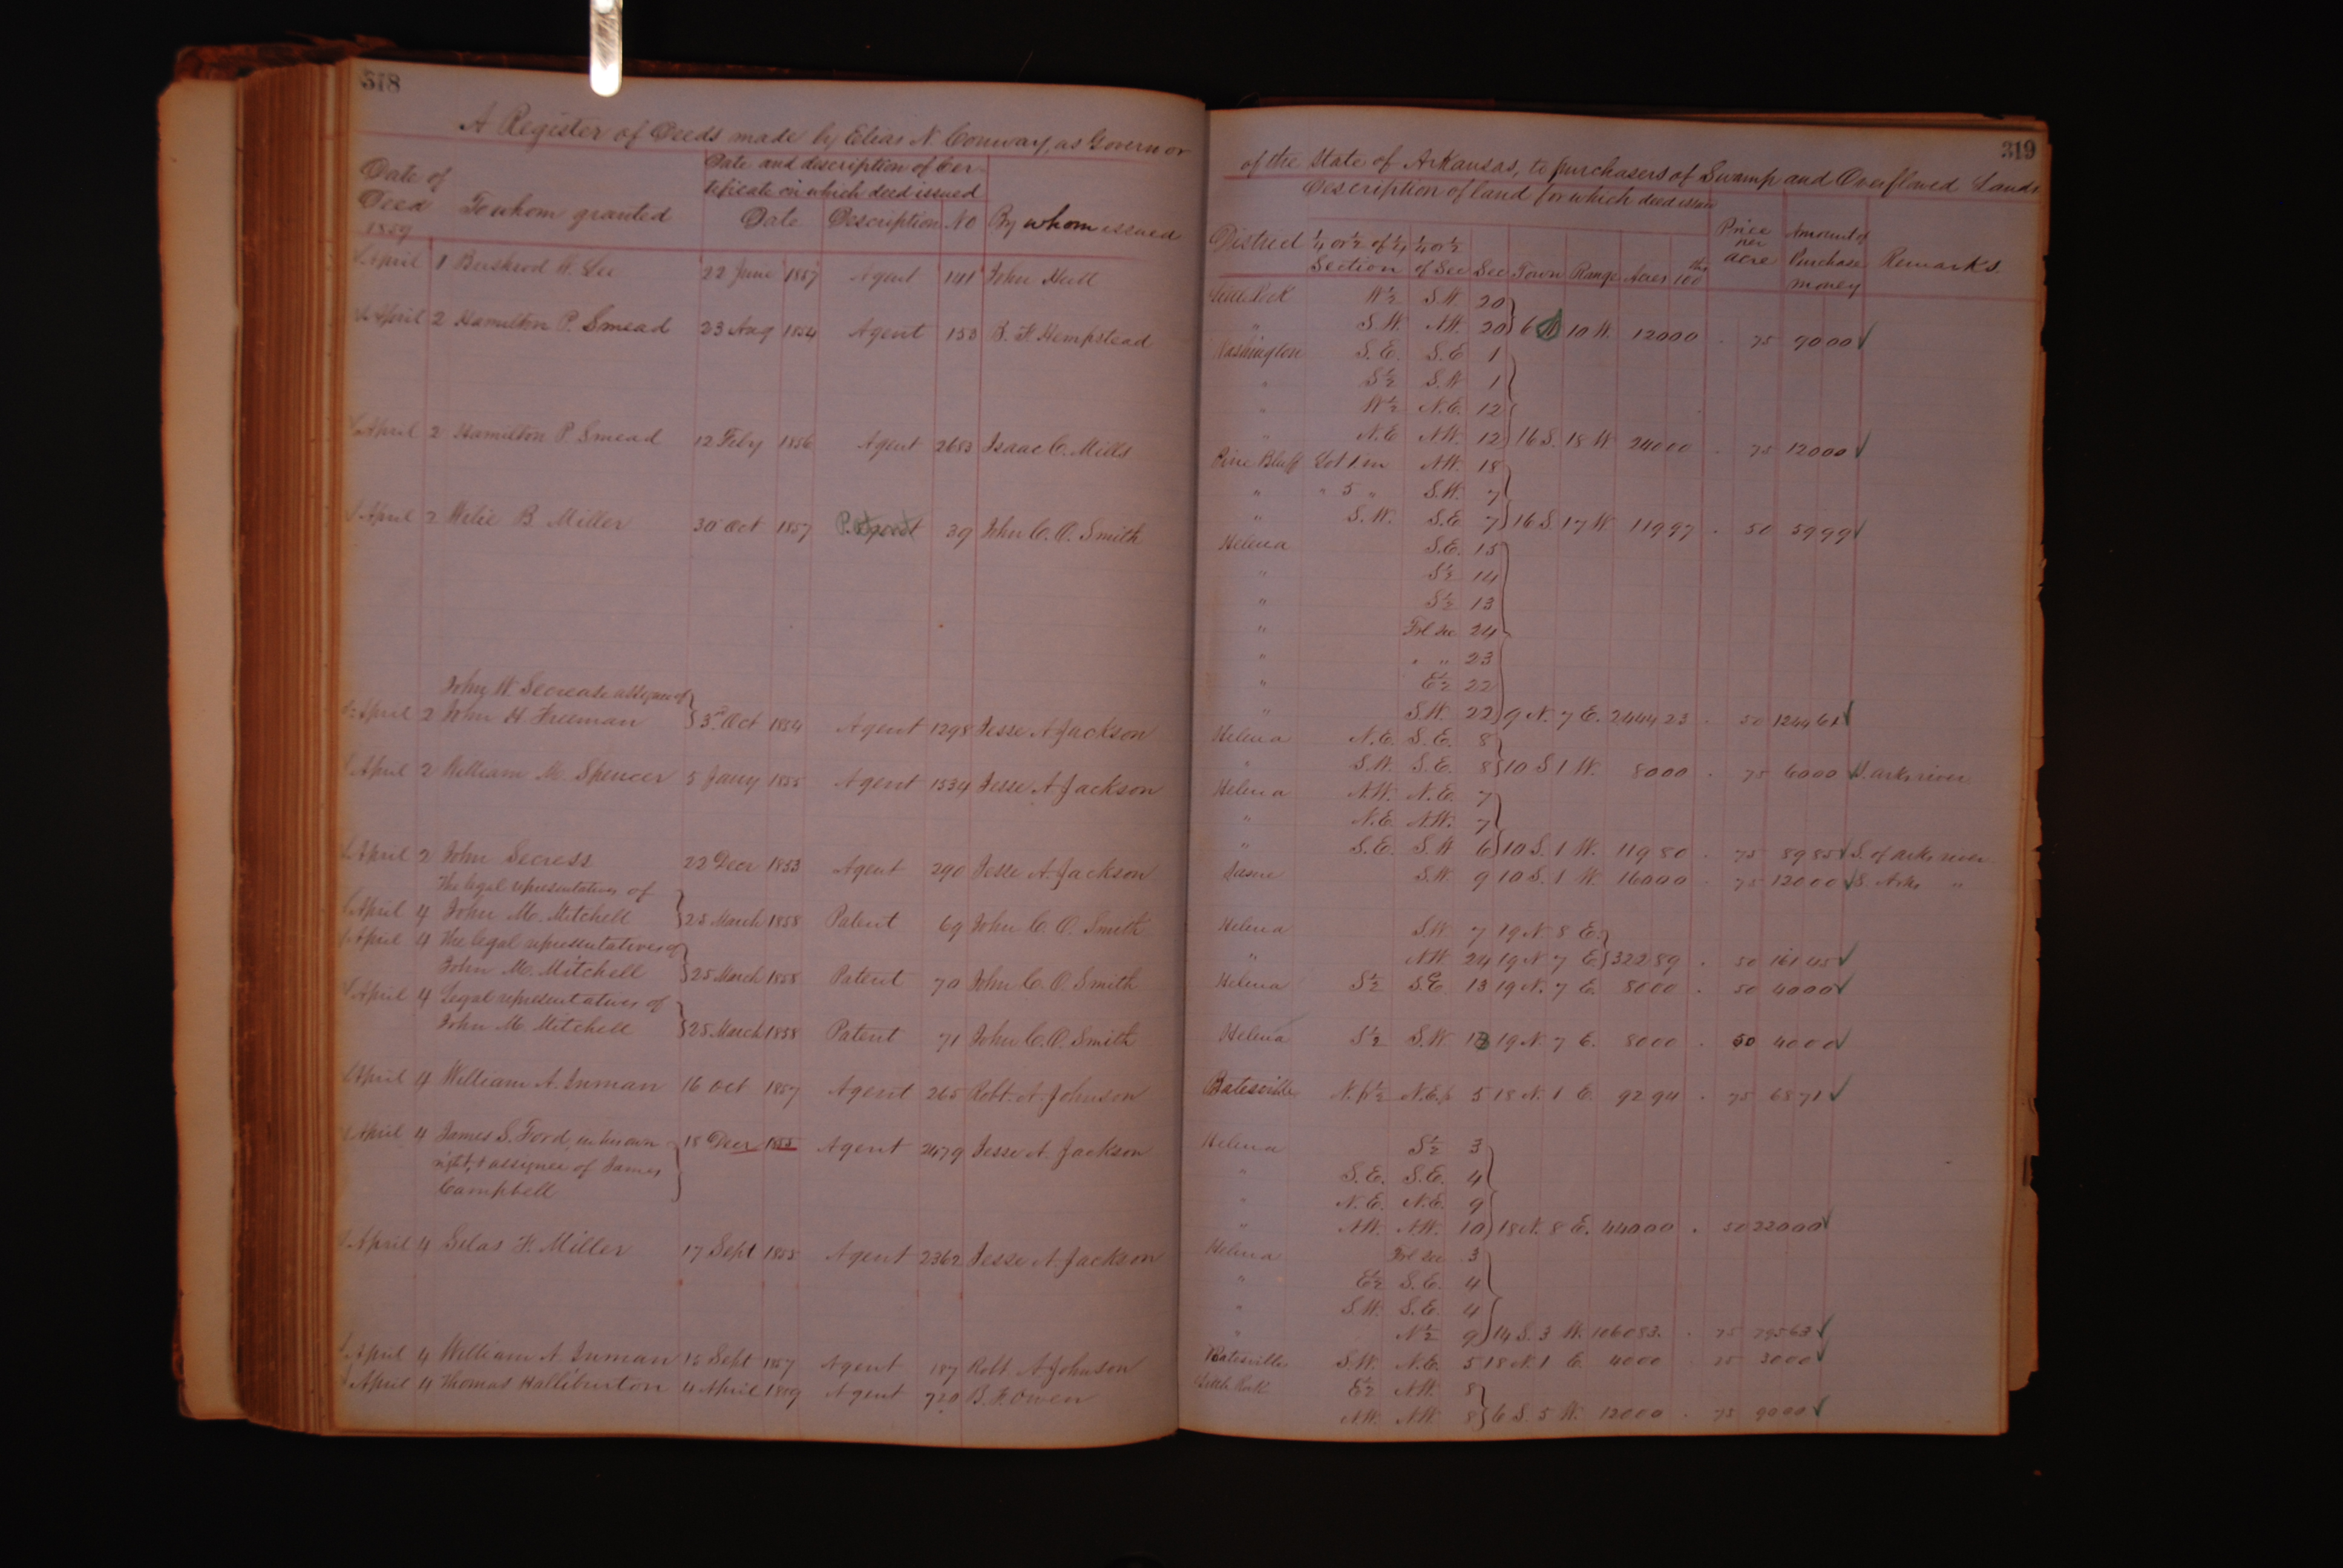 318
A Register of Deeds made by Elias N. Conway, as Governor
Date of Deed 1859
To whom granted
Date and description of Cer-
tificate on which deed issued
Date Description No By whom issued
April 1 Bushrod W. Lee 22 June 1857 Agent 141 John Hutt
April 2 Hamilton P. Smead 23 Aug 1854 Agent 153 B. F. Hempstead
April 2 Hamilton P. Smead 12 Feby 1856 Agent 2683 Isaac C. Mills
April 2 Wilie B. Miller 30 Oct 1857 Patent 39 John C. O. Smith
John W. Secrease assignee of
April 2 John H. Freeman 3rd Oct 1854 Agent 1298 Jesse A Jackson
April 2 William M. Spencer 5 Jany 1855 Agent 1534 Jesse A Jackson
April 2 John Secress 22 Decr 1853 Agent 290 Jesse A. Jackson
The legal representatives of
April 4 John M. Mitchell 25 March 1858 Patent 69 John C. O. Smith
April 4 The legal representatives of
John M. Mitchell 25 March 1858 Patent 70 John C. O. Smith
April 4 Legal representatives of
John M. Mitchell 25 March 1858 Patent 71 John C. O. Smith
April 4 William A. Inman 16 Oct 1857 Agent 265 Robt. A. Johnson
April 4 James S. Ford, in his own 18 Decr 1855 Agent 2479 Jesse A. Jackson
right, + assignee of James
Campbell
April 4 Silas F. Miller 17 Sept 1855 Agent 2362 Jesse A. Jackson
April 4 William A. Inman 15 Sept 1857 Agent 187 Robt. A Johnson
April 4 Thomas Halliburton 4 April 1859 Agent 720 B. F. Owen
319
of the State of Arkansas, to purchasers of Swamp and Overflowed Lands
Description of land for which deed issued
District ¼ or ½ of ¼ Section ¼ or ½ of Sec Sec Town Range Acres 100ths Price per acre Amount of Purchase money Remarks.
Little Rock W½ S.W. 20
" S.W. N.W. 20 6 10 W. 120 00 . 75 90 00 ✓
Washington S.E. S.E 1
" S½ S.W 1
" W½ N.E. 12
" N.E N.W. 12 16 S. 18 W 240 00 . 75 120 00 ✓
Pine Bluff Lot 1 in N.W. 18
" " 5 " S.W. 7
" S.W. S.E 7 16 S. 17 W. 119 97 . 50 59 99 ✓
Helena S.E. 15
" S½ 14
" S½ 13
" Frl sec 24
" " " 23
" E½ 22
" S.W. 22 9 N. 7 E. 2444 23 . 50 1244 61 ✓
Helena N.E. S.E. 8
" S.W. S.E. 8 10 S 1 W. 80 00 . 75 60 00 ✓ S. Arks river
Helena N.W. N.E. 7
" N.E N.W. 7
" S.E. S.W 6 10 S. 1 W. 119 80 . 75 89 85 ✓ S. of Arks river
Same S.W. 9 10 S. 1 W. 160 00 . 75 120 00 ✓ S. Arks "
Helena S.W 7 19 N. 8 E.
" N.W. 24 19 N 7 E 322 89 . 50 161 45 ✓
Helena S½ S.E. 13 19 N. 7 E. 80 00 . 50 40 00 ✓
Helena S½ S.W 13 19 N. 7 E. 80 00 . 50 40 00 ✓
Batesville N. p½ N.E. p 5 18 N. 1 E. 92 94 . 75 68 71 ✓
Helena S½ 3
" S.E. S.E. 4
" N.E. N.E. 9
" N.W. N.W. 10 18 N. 8 E. 440 00 . 50 220 00 ✓
Helena Frl sec 3
" E½ S.E. 4
" S.W. S.E. 4
" N½ 9 14 S. 3 W. 1060 83 . 75 795 63 ✓
Batesville S.W. N.E. 5 18 N. 1 E 40 00 75 30 00 ✓
Little Rock E½ N.W. 8
N.W. N.W 8 6 S. 5 W. 120 00 . 75 90 00 ✓